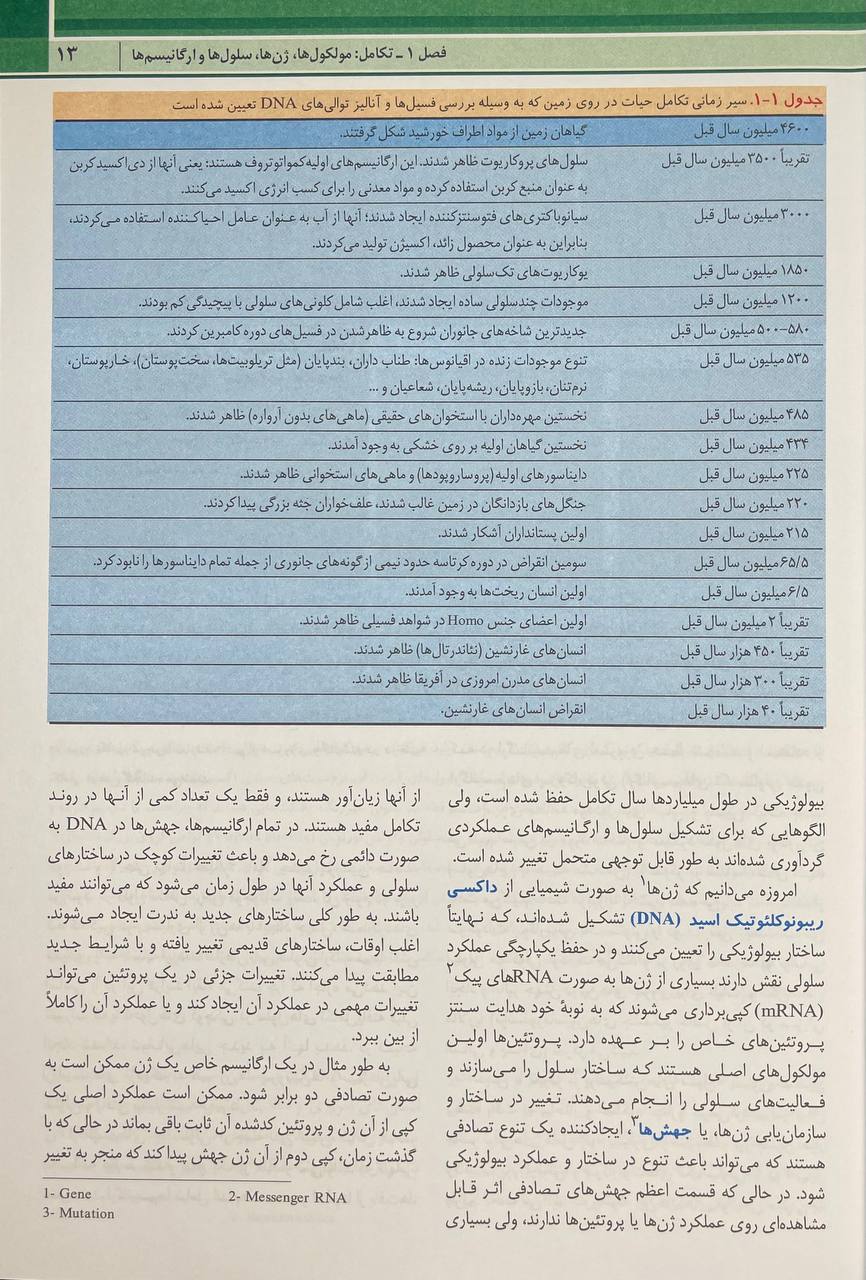 فصل ۱ ـ تکامل: مولکول‌ها، ژن‌ها، سلول‌ها و ارگانیسم‌ها ۱۳
جدول ۱-۱. سیر زمانی تکامل حیات در روی زمین که به وسیله بررسی فسیل‌ها و آنالیز توالی‌های DNA تعیین شده است
۴۶۰۰ میلیون سال قبل گیاهان زمین از مواد اطراف خورشید شکل گرفتند.
تقریباً ۳۵۰۰ میلیون سال قبل سلول‌های پروکاریوت ظاهر شدند. این ارگانیسم‌های اولیه کمواتوتروف هستند: یعنی آنها از دی‌اکسید کربن
به عنوان منبع کربن استفاده کرده و مواد معدنی را برای کسب انرژی اکسید می‌کنند.
۳۰۰۰ میلیون سال قبل سیانوباکتری‌های فتوسنتزکننده ایجاد شدند؛ آنها از آب به عنوان عامل احیاکننده استفاده می‌کردند،
بنابراین به عنوان محصول زائد، اکسیژن تولید می‌کردند.
۱۸۵۰ میلیون سال قبل یوکاریوت‌های تک‌سلولی ظاهر شدند.
۱۲۰۰ میلیون سال قبل موجودات چندسلولی ساده ایجاد شدند، اغلب شامل کلونی‌های سلولی با پیچیدگی کم بودند.
۵۸۰-۵۰۰ میلیون سال قبل جدیدترین شاخه‌های جانوران شروع به ظاهرشدن در فسیل‌های دوره کامبرین کردند.
۵۳۵ میلیون سال قبل تنوع موجودات زنده در اقیانوس‌ها: طناب داران، بندپایان (مثل تریلوبیت‌ها، سخت‌پوستان)، خارپوستان،
نرم‌تنان، بازوپایان، ریشه‌پایان، شعاعیان و ...
۴۸۵ میلیون سال قبل نخستین مهره‌داران با استخوان‌های حقیقی (ماهی‌های بدون آرواره) ظاهر شدند.
۴۳۴ میلیون سال قبل نخستین گیاهان اولیه بر روی خشکی به وجود آمدند.
۲۲۵ میلیون سال قبل دایناسورهای اولیه (پروساروپودها) و ماهی‌های استخوانی ظاهر شدند.
۲۲۰ میلیون سال قبل جنگل‌های بازدانگان در زمین غالب شدند، علف‌خواران جثه بزرگی پیدا کردند.
۲۱۵ میلیون سال قبل اولین پستانداران آشکار شدند.
۶۵/۵ میلیون سال قبل سومین انقراض در دوره کرتاسه حدود نیمی از گونه‌های جانوری از جمله تمام دایناسورها را نابود کرد.
۶/۵ میلیون سال قبل اولین انسان ریخت‌ها به وجود آمدند.
تقریباً ۲ میلیون سال قبل اولین اعضای جنس Homo در شواهد فسیلی ظاهر شدند.
تقریباً ۴۵۰ هزار سال قبل انسان‌های غارنشین (نئاندرتال‌ها) ظاهر شدند.
تقریباً ۳۰۰ هزار سال قبل انسان‌های مدرن امروزی در آفریقا ظاهر شدند.
تقریباً ۴۰ هزار سال قبل انقراض انسان‌های غارنشین.
بیولوژیکی در طول میلیاردها سال تکامل حفظ شده است، ولی
الگوهایی که برای تشکیل سلول‌ها و ارگانیسم‌های عملکردی
گردآوری شده‌اند به طور قابل توجهی متحمل تغییر شده است.
امروزه می‌دانیم که ژن‌ها۱ به صورت شیمیایی از داکسی
ریبونوکلئوتیک اسید (DNA) تشکیل شده‌اند، که نهایتاً
ساختار بیولوژیکی را تعیین می‌کنند و در حفظ یکپارچگی عملکرد
سلولی نقش دارند بسیاری از ژن‌ها به صورت RNAهای پیک۲
(mRNA) کپی‌برداری می‌شوند که به نوبهٔ خود هدایت سنتز
پروتئین‌های خاص را بر عهده دارد. پروتئین‌ها اولین
مولکول‌های اصلی هستند که ساختار سلول را می‌سازند و
فعالیت‌های سلولی را انجام می‌دهند. تغییر در ساختار و
سازمان‌یابی ژن‌ها، یا جهش‌ها۳، ایجادکننده یک تنوع تصادفی
هستند که می‌تواند باعث تنوع در ساختار و عملکرد بیولوژیکی
شود. در حالی که قسمت اعظم جهش‌های تصادفی اثر قابل
مشاهده‌ای روی عملکرد ژن‌ها یا پروتئین‌ها ندارند، ولی بسیاری
از آنها زیان‌آور هستند، و فقط یک تعداد کمی از آنها در روند
تکامل مفید هستند. در تمام ارگانیسم‌ها، جهش‌ها در DNA به
صورت دائمی رخ می‌دهد و باعث تغییرات کوچک در ساختارهای
سلولی و عملکرد آنها در طول زمان می‌شود که می‌توانند مفید
باشند. به طور کلی ساختارهای جدید به ندرت ایجاد می‌شوند.
اغلب اوقات، ساختارهای قدیمی تغییر یافته و با شرایط جدید
مطابقت پیدا می‌کنند. تغییرات جزئی در یک پروتئین می‌تواند
تغییرات مهمی در عملکرد آن ایجاد کند و یا عملکرد آن را کاملاً
از بین ببرد.
به طور مثال در یک ارگانیسم خاص یک ژن ممکن است به
صورت تصادفی دو برابر شود. ممکن است عملکرد اصلی یک
کپی از آن ژن و پروتئین کدشده آن ثابت باقی بماند در حالی که با
گذشت زمان، کپی دوم از آن ژن جهش پیدا کند که منجر به تغییر
1- Gene 2- Messenger RNA
3- Mutation